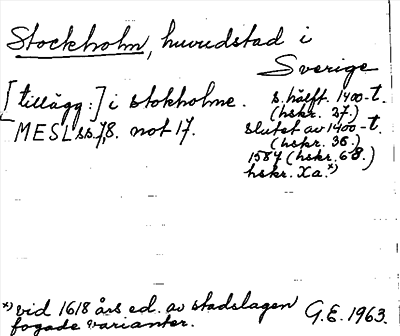 Stockholm, huvudstad i
Sverige
[tillägg:] i stokholme. s. hälft. 1400-t.
(hskr. 27.)
MESL ss. 7,8. not 17. slutet av 1400-t.
(hskr. 36.)
1587 (hskr. 68.)
hskr. Xa.*)
*) vid 1618 års ed. av stadslagen
fogade varianter. G.E. 1963.